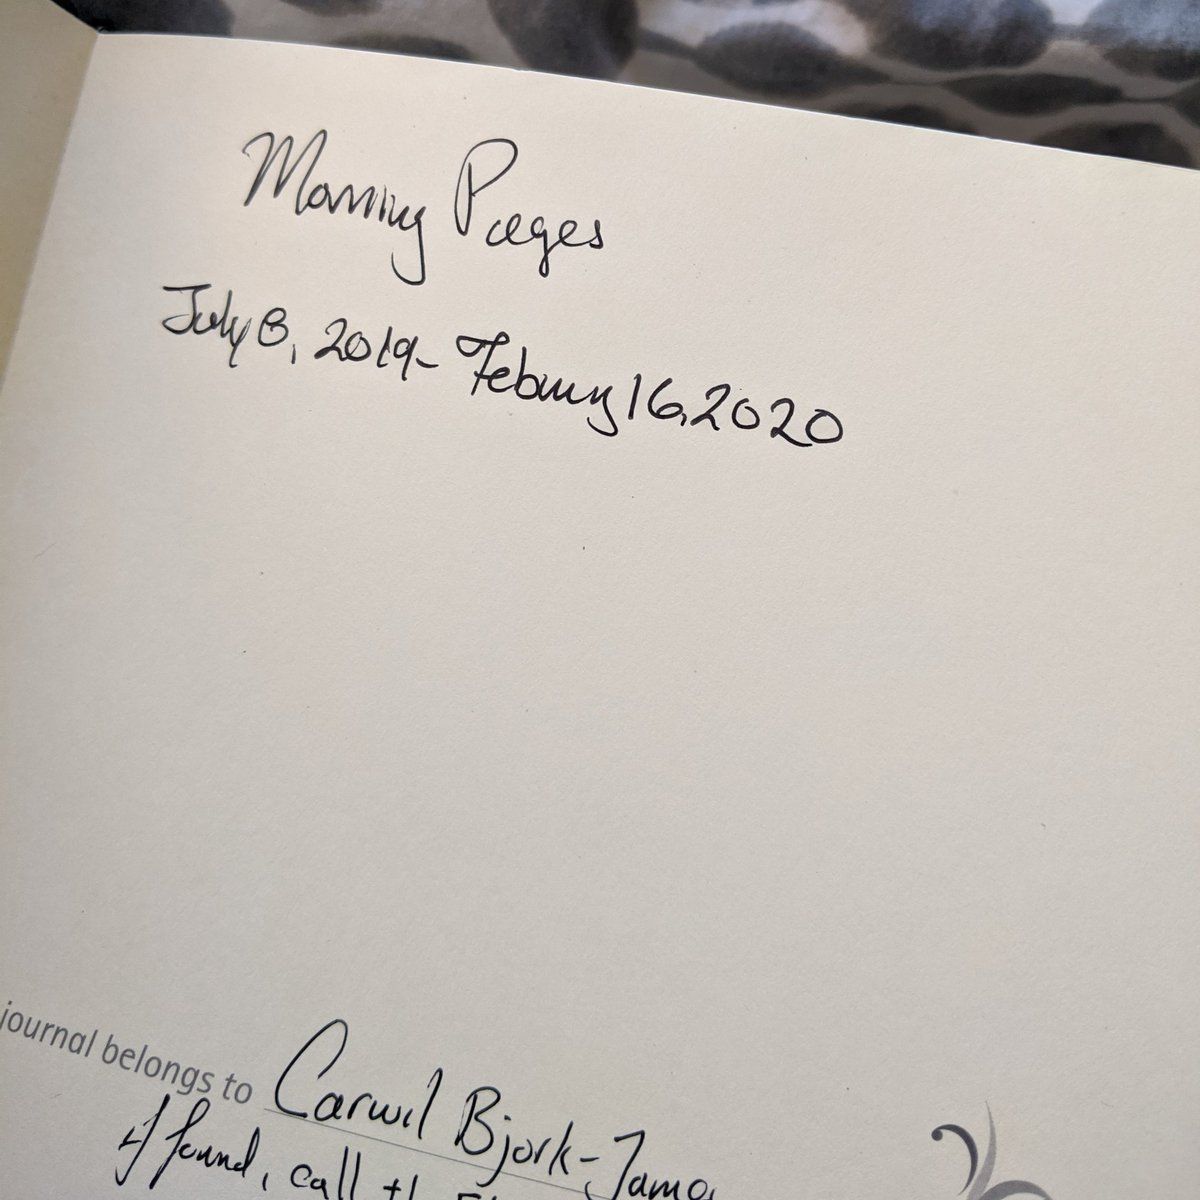 Morning Pages
July 8, 2019 - February 16, 2020
journal belongs to Carwil Bjork-James
If found, call